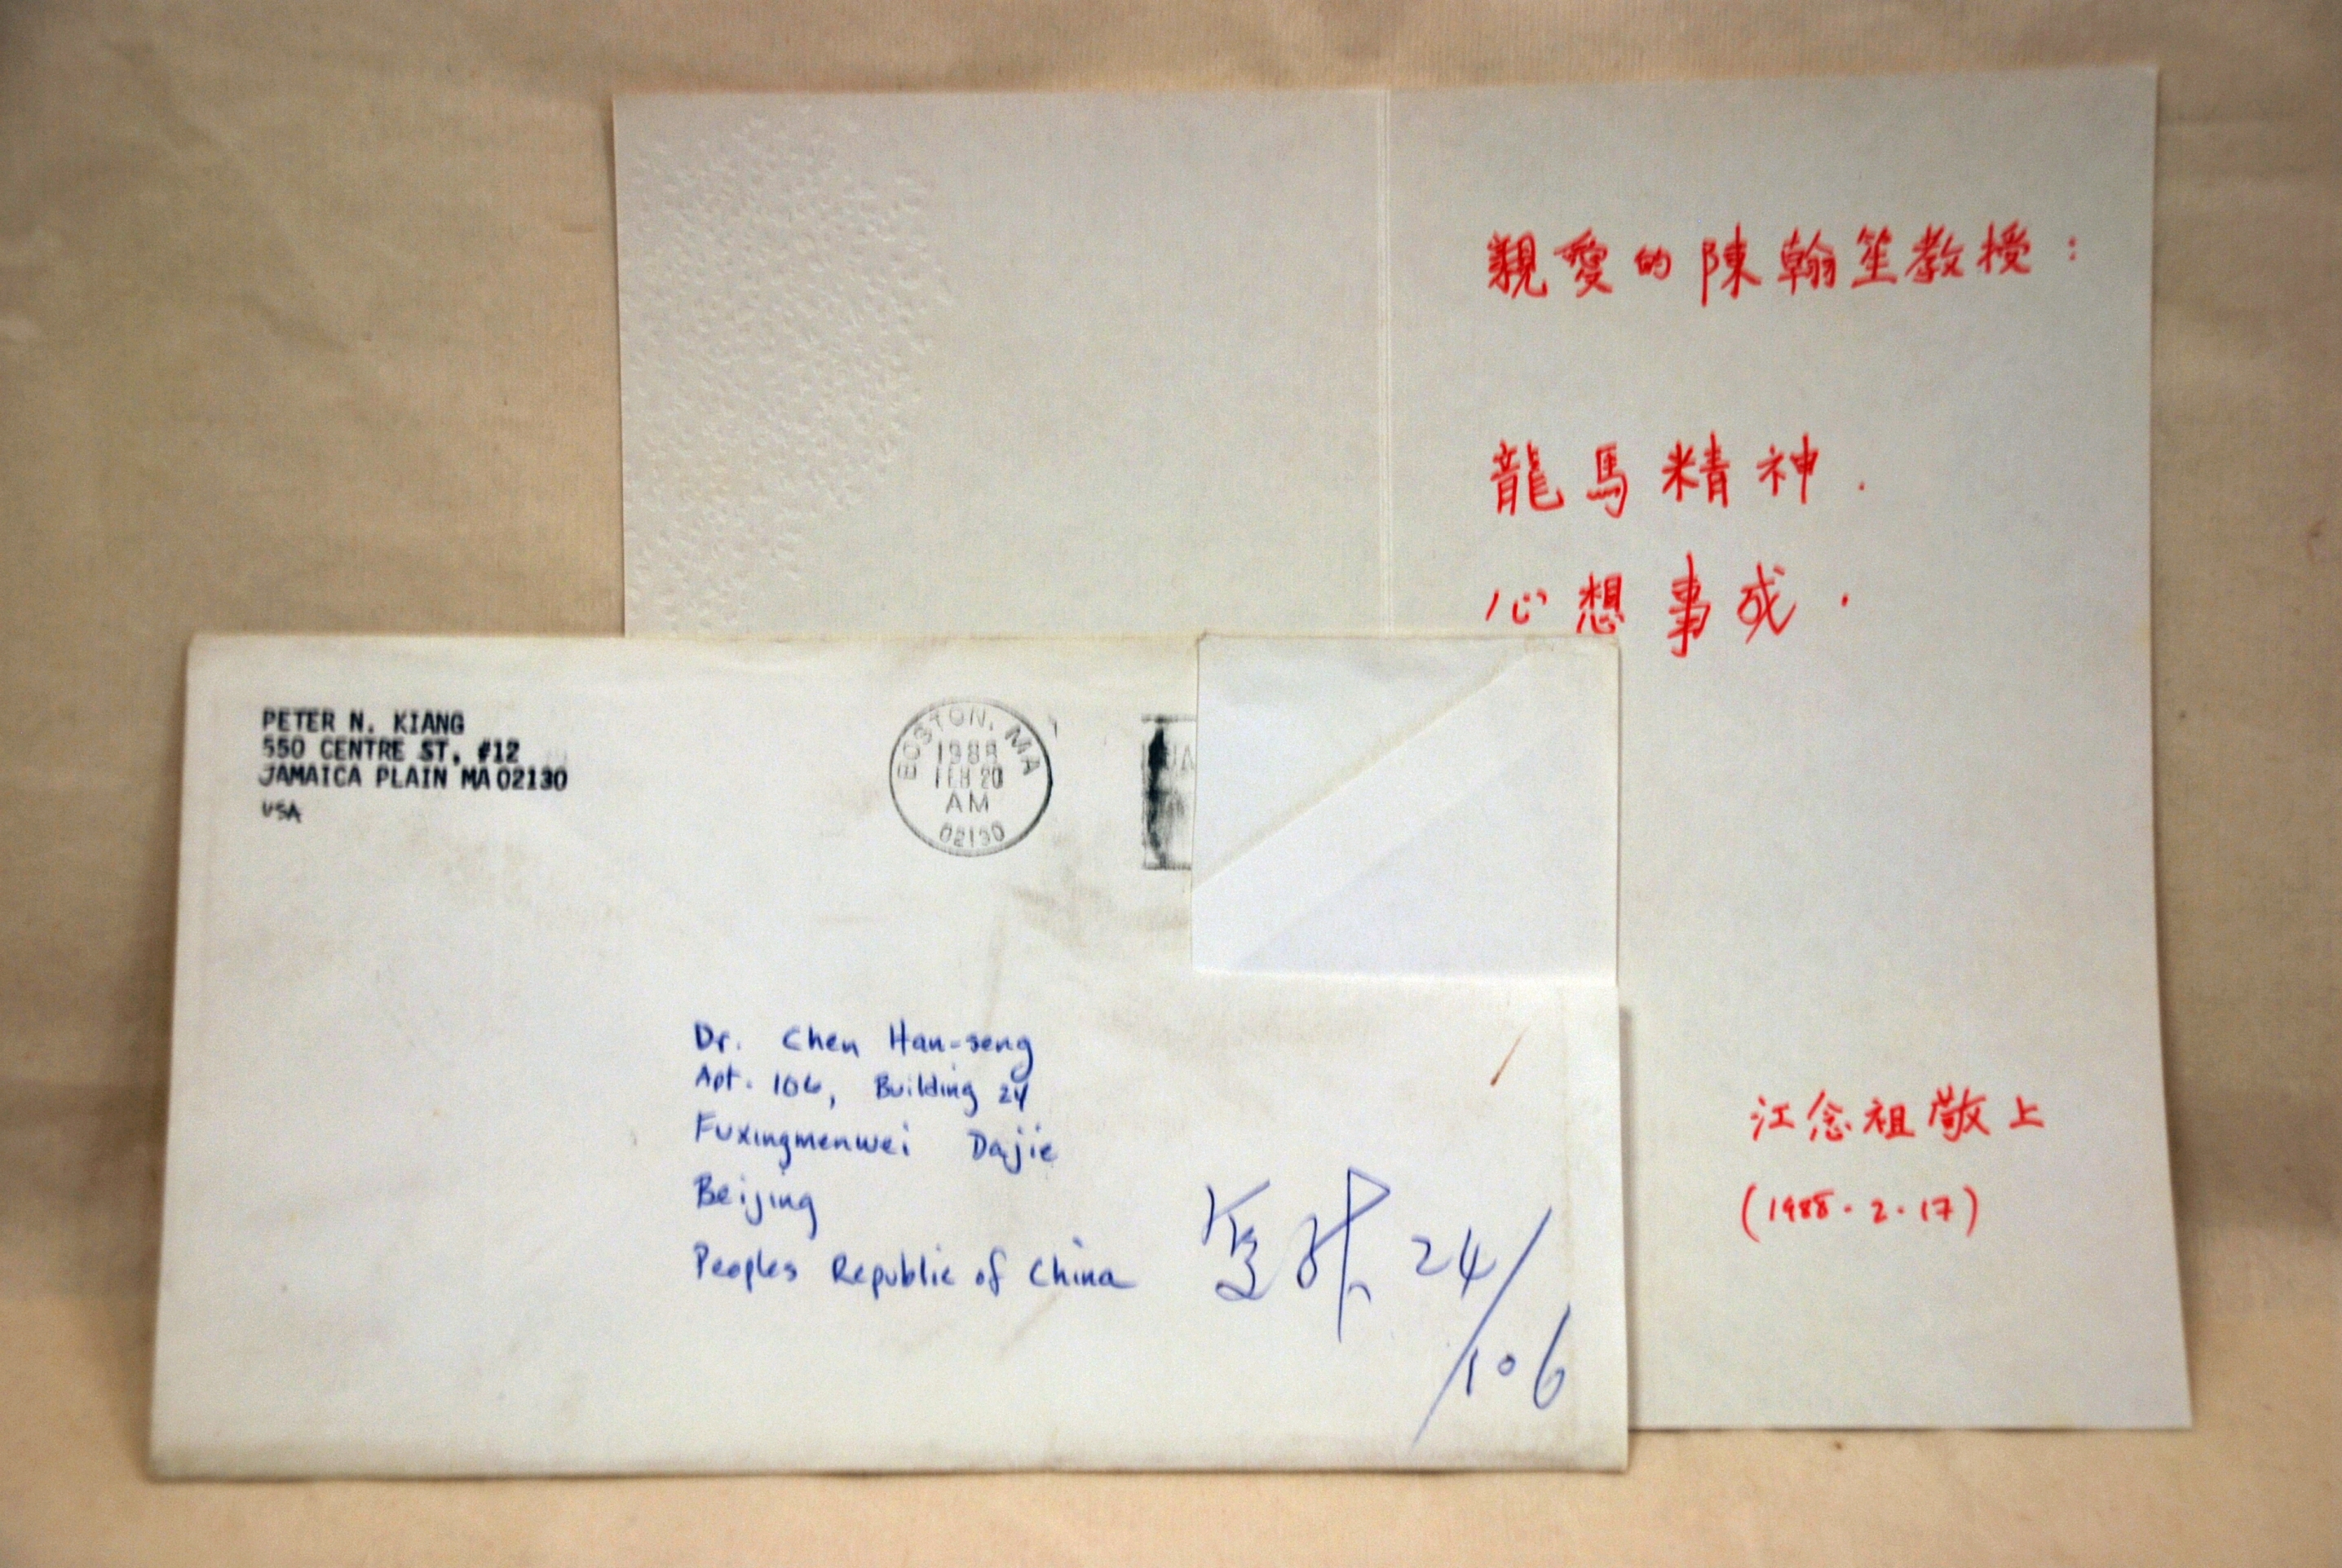 親愛的陳翰笙教授：
龍馬精神.
心想事成.
江念祖敬上
(1988.2.17)
PETER N. KIANG
550 CENTRE ST. #12
JAMAICA PLAIN MA 02130
USA
BOSTON, MA
1988
FEB 20
AM
02130
Dr. Chen Han-seng
Apt. 106, Building 24
Fuxingmenwei Dajie
Beijing
Peoples Republic of China
24/
106